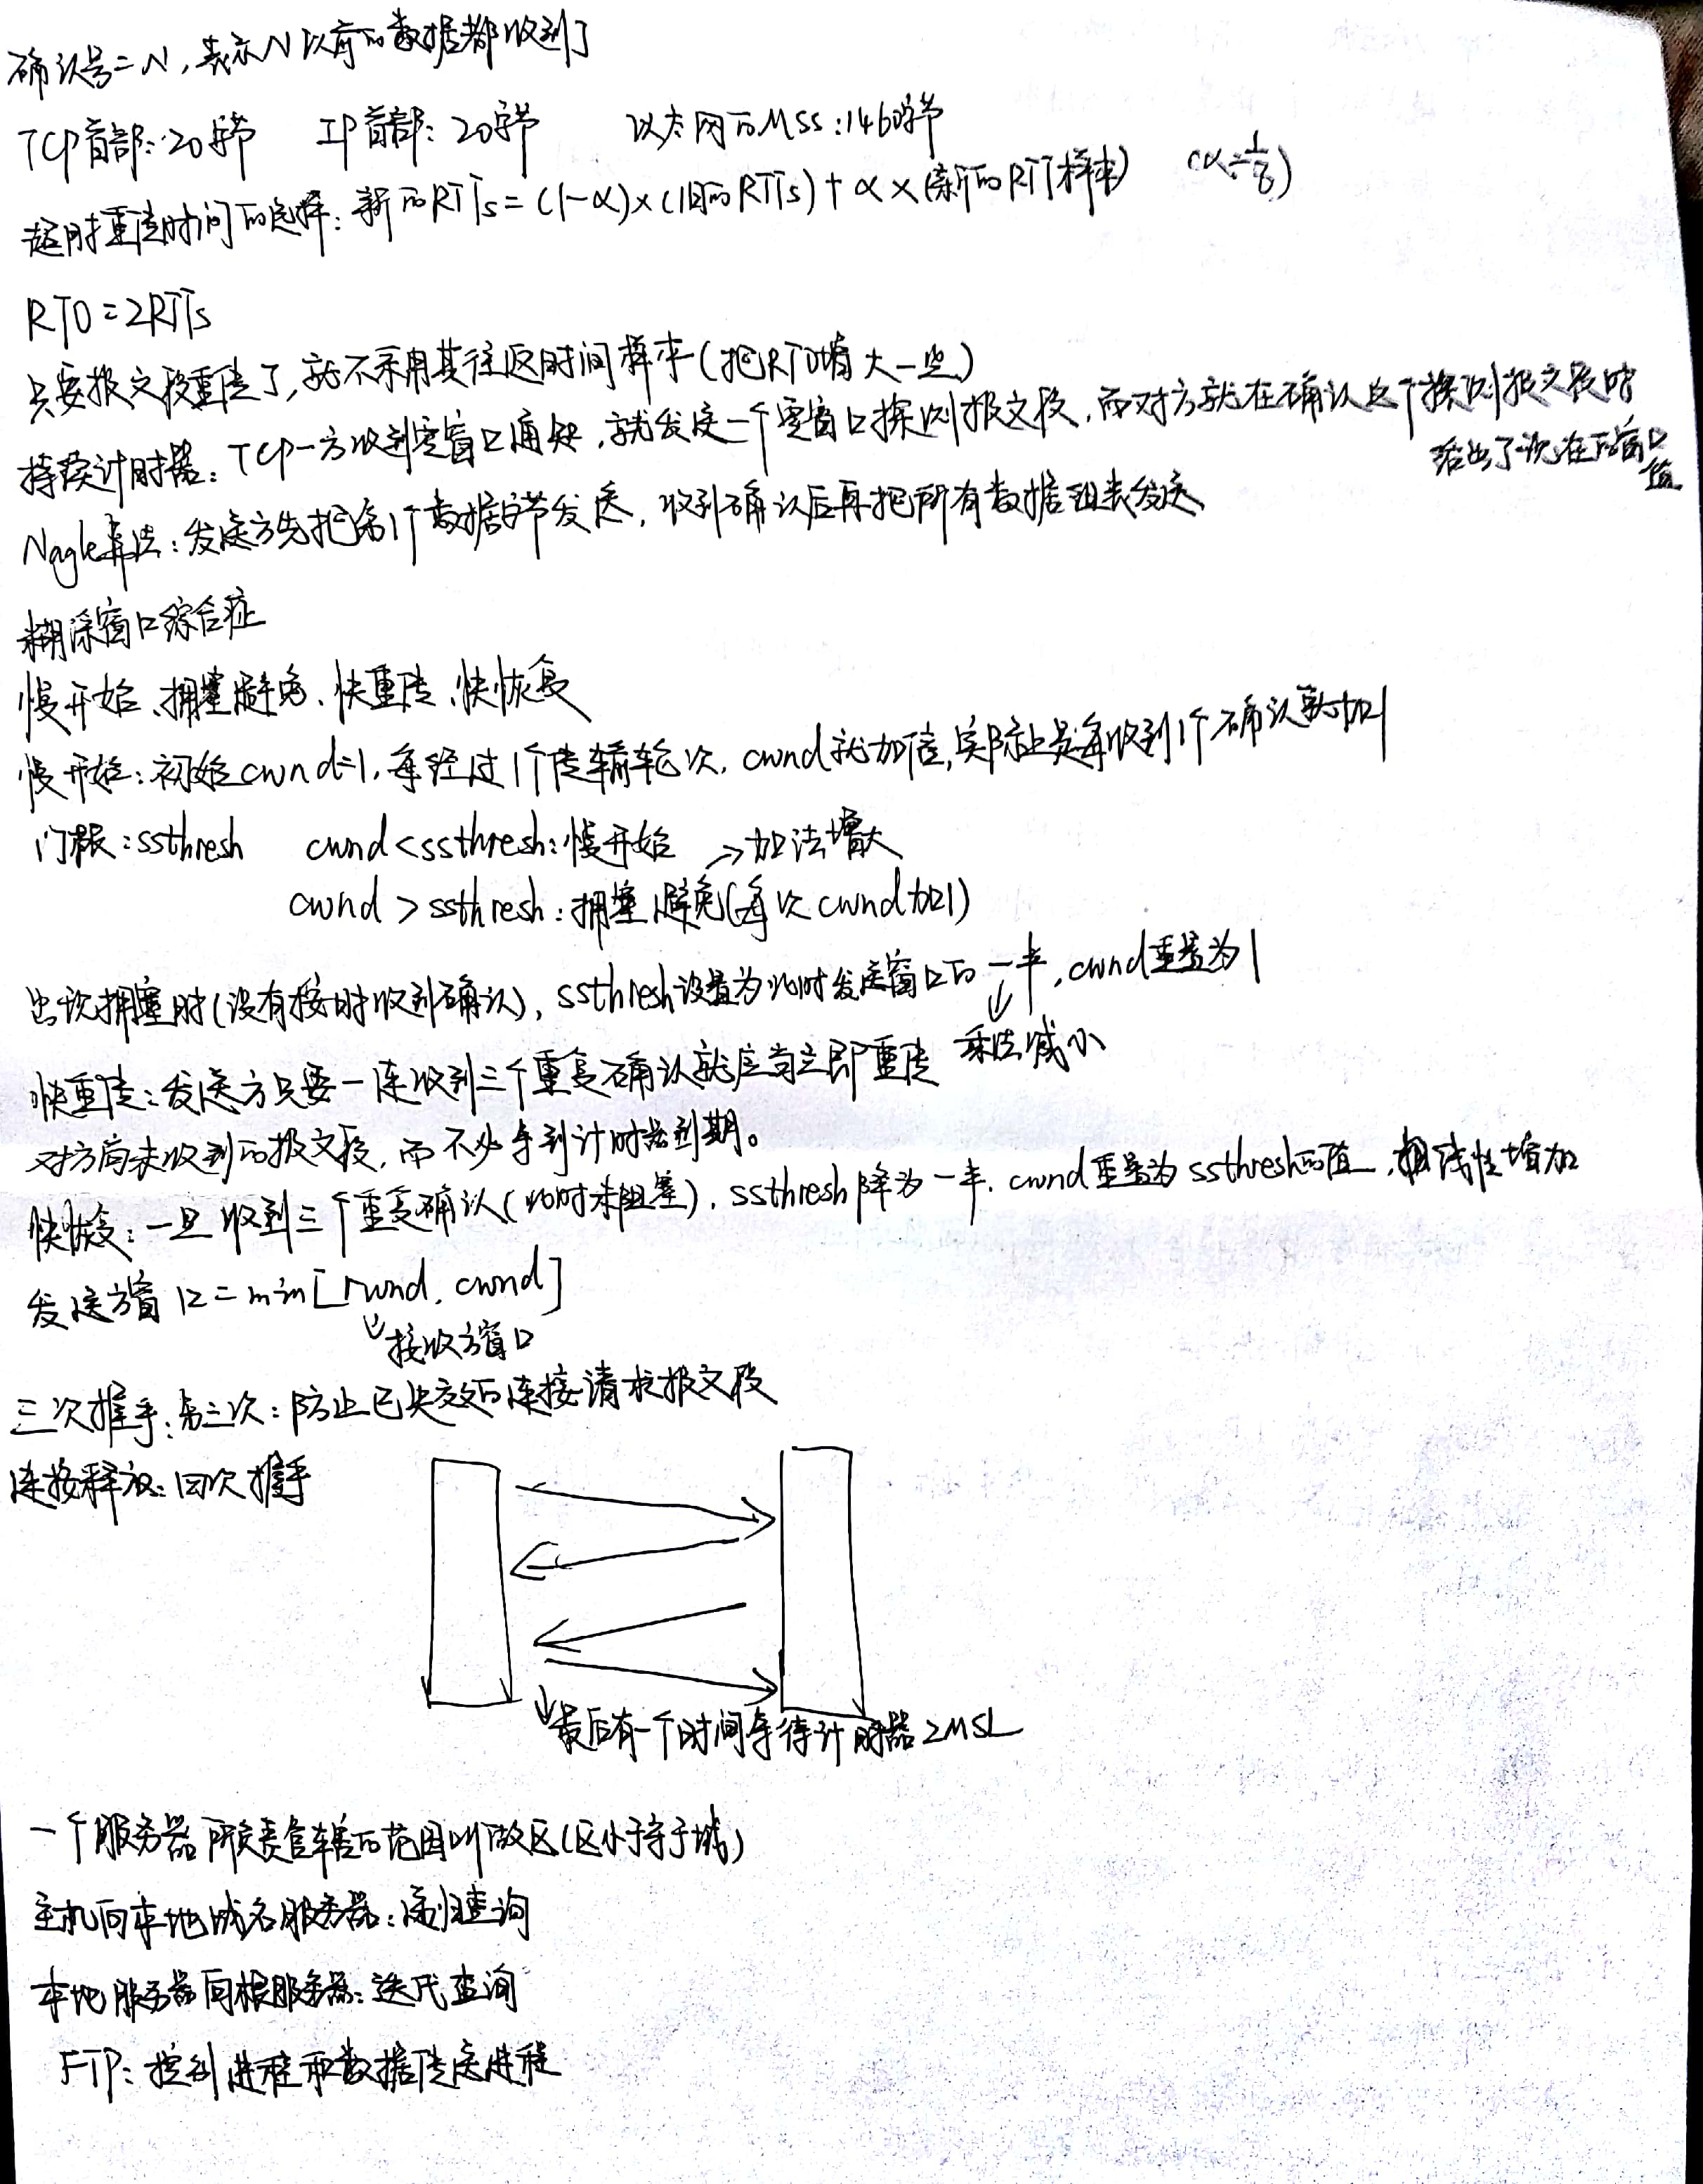 确认号=N，表示N以前的数据都收到了
TCP首部：20字节　IP首部：20字节　以太网的MSS：1460字节
超时重传时间的选择：新的RTTs=(1-α)×(旧的RTTs)+α×(新的RTT样本)　(α=1/8)
RTO=2RTTs
只要报文段重传了，就不采用其往返时间样本(把RTO增大一些)
持续计时器：TCP一方收到零窗口通知，就发送一个零窗口探测报文段，而对方就在确认这个探测报文段时
给出了现在的窗口
值
Nagle算法：发送方先把第1个数据字节发送，收到确认后再把所有数据组装发送
糊涂窗口综合症
慢开始、拥塞避免、快重传、快恢复
慢开始：初始cwnd=1，每经过1个传输轮次，cwnd就加倍，实际上是每收到1个确认就加1
门限：ssthresh　cwnd<ssthresh：慢开始　→加法增大
cwnd>ssthresh：拥塞避免(每次cwnd加1)
出现拥塞时(没有按时收到确认)，ssthresh设置为此时发送窗口的一半，cwnd重置为1
↓
乘法减小
快重传：发送方只要一连收到三个重复确认就应当立即重传
对方尚未收到的报文段，而不必等到计时器到期。
快恢复：一旦收到三个重复确认(此时未阻塞)，ssthresh降为一半，cwnd重置为ssthresh的值，线性增加
发送方窗口=min[rwnd，cwnd]
↓接收方窗口
三次握手：第三次：防止已失效的连接请求报文段
连接释放：四次握手
↓最后有一个时间等待计时器2MSL
一个服务器所负责管辖的范围叫做区(区小于等于域)
主机向本地域名服务器：递归查询
本地服务器向根服务器：迭代查询
FTP：控制进程和数据传送进程